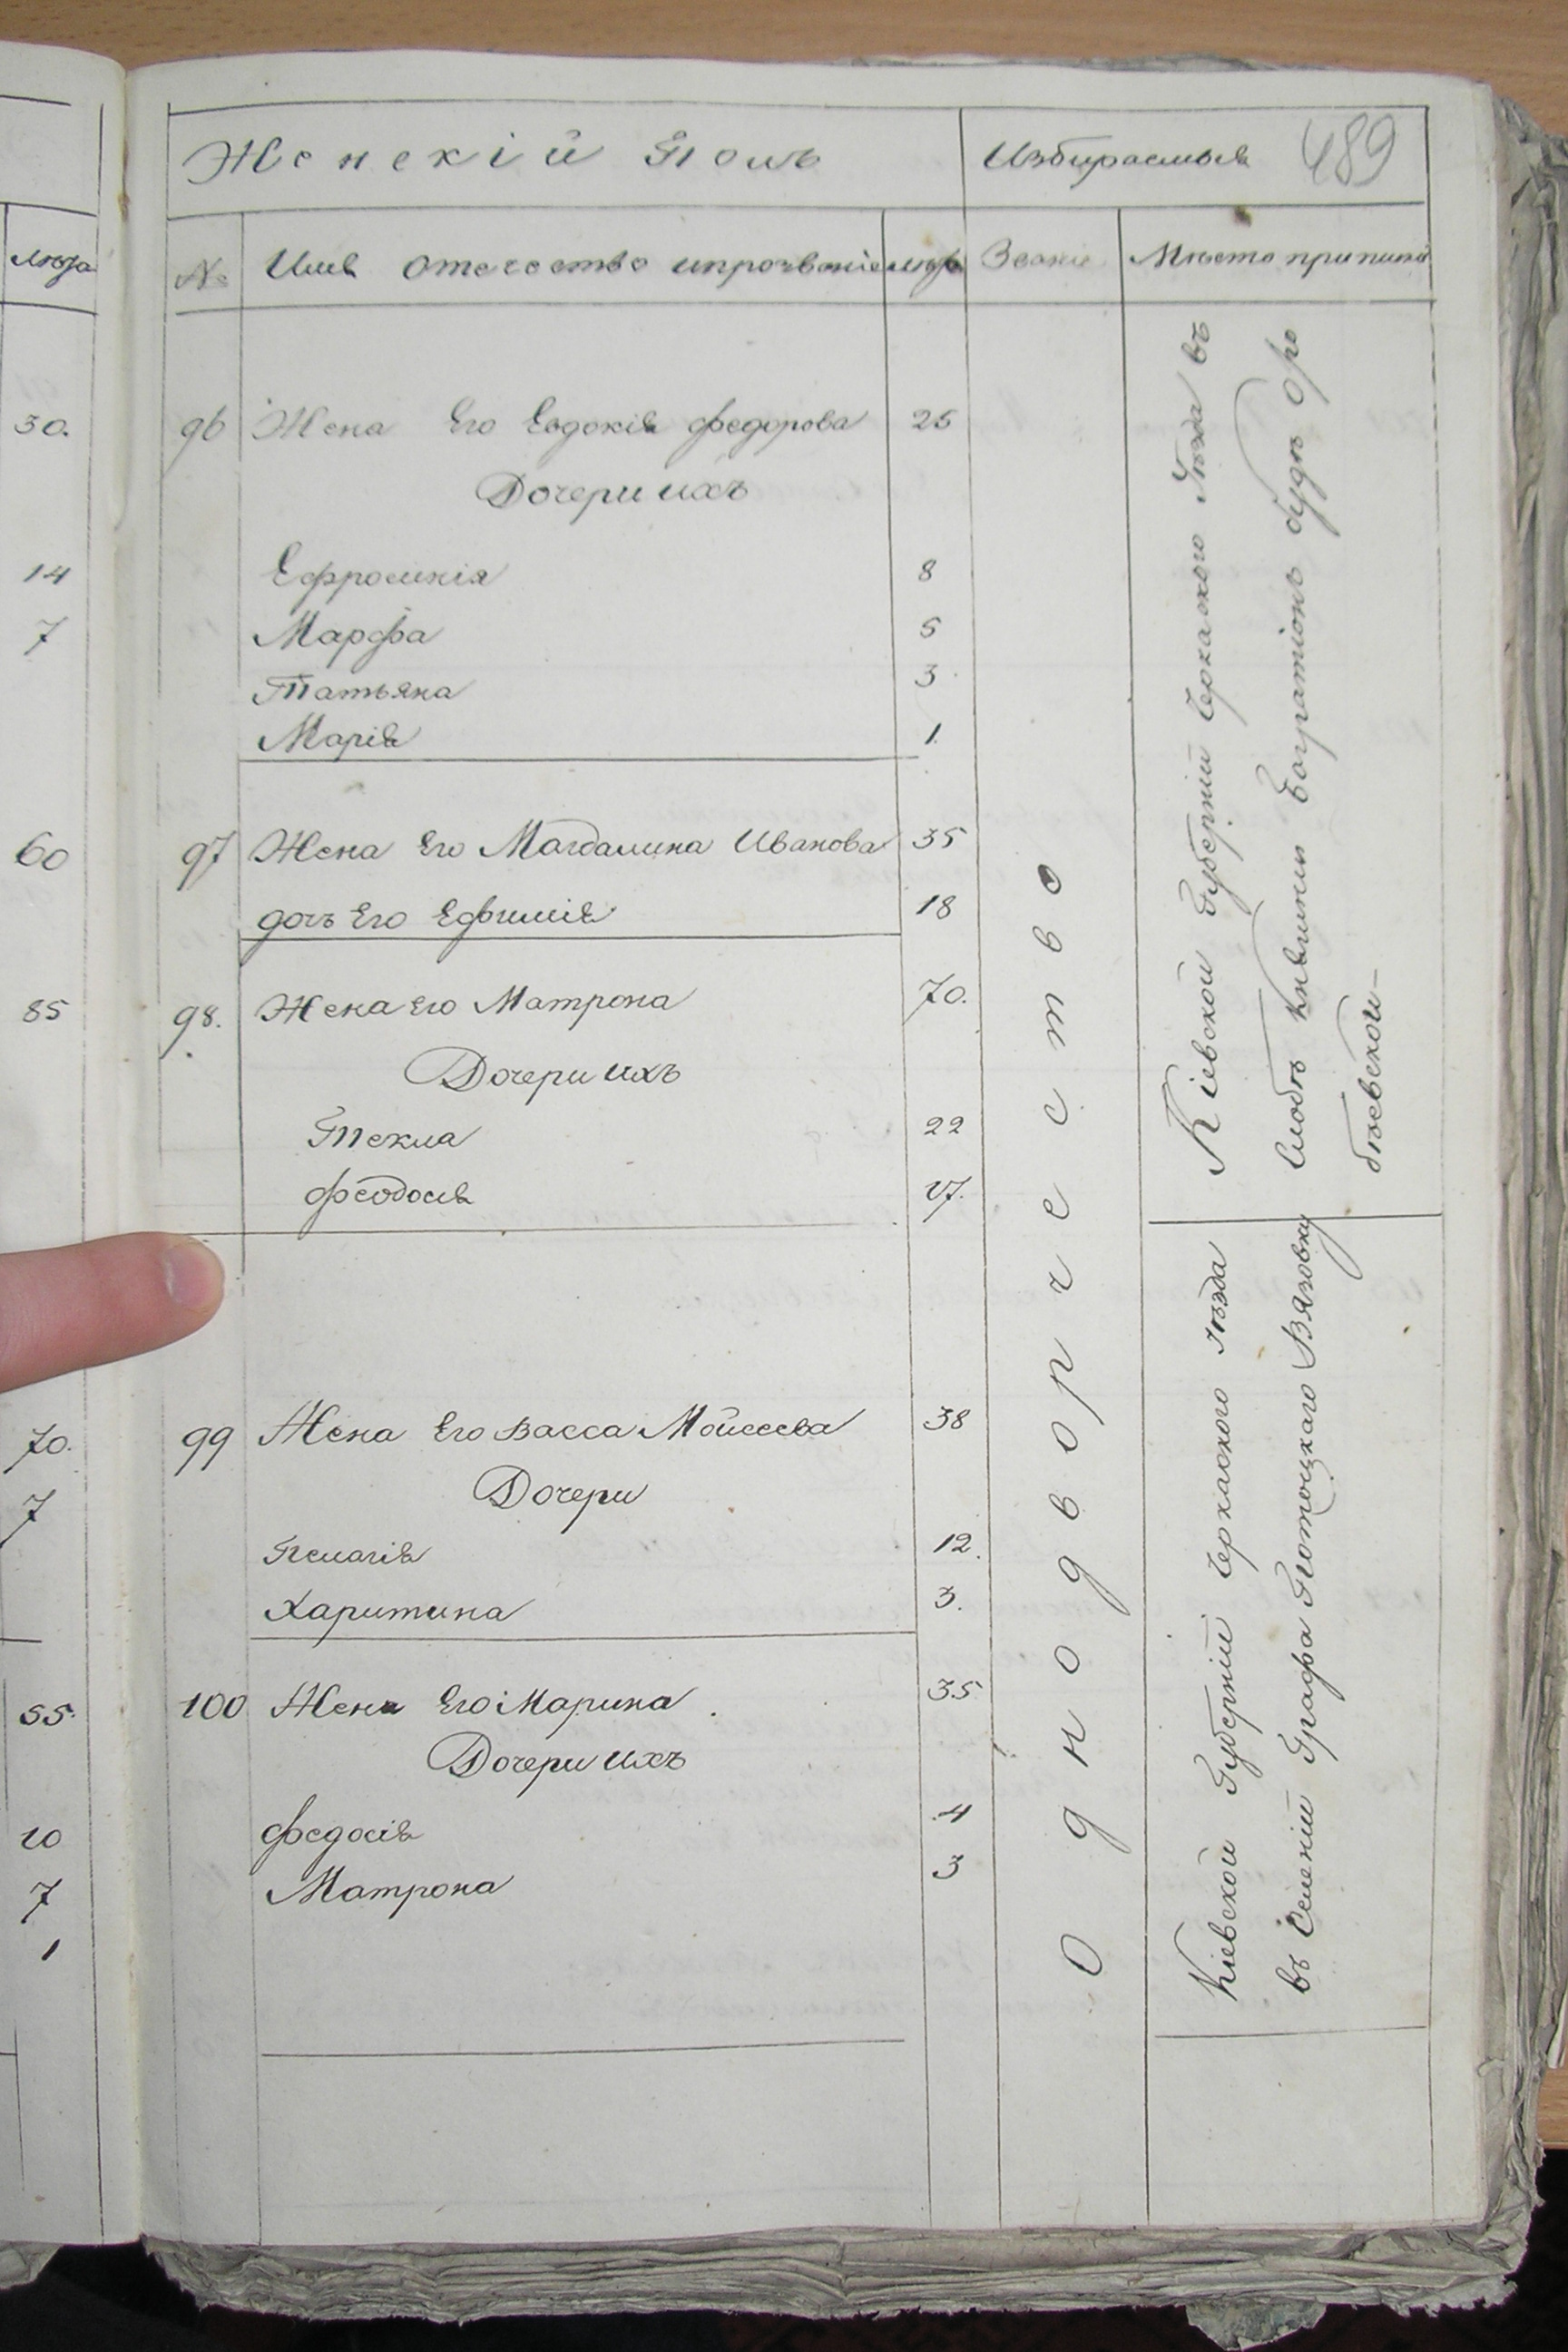 Женскій Полъ
Избираемыя
489
Лѣта
№
Имя отечество и прозваніе
лѣта
Званіе
Мѣсто приписки
30.
96
Жена Его Евдокія Федорова
25
Дочери ихъ
14
Ефросинія
8
7
Марфа
5
Татьяна
3
Марія
1.
60
97
Жена Его Магдалина Иванова
35
дочь Его Ефимія
18
85
98.
Жена Его Матрона
70.
Дочери ихъ
Текла
22
Феодосія
17.
70.
99
Жена Его Васса Мойсеева
38
7
Дочери
Пелагія
12.
Харитина
3.
55.
100
Жена Его Марина
35
Дочери ихъ
10
Федосія
4
7
Матрона
3
1
Однодворчество
Кіевской Губерніи Черкаского Уѣзда въ
Слобѣ Княгини Багратіонъ будѣ Оро
бѣевской
Кіевской Губерніи Черкаского уѣзда
въ Селеніи Графа Потоцкаго Вяговку